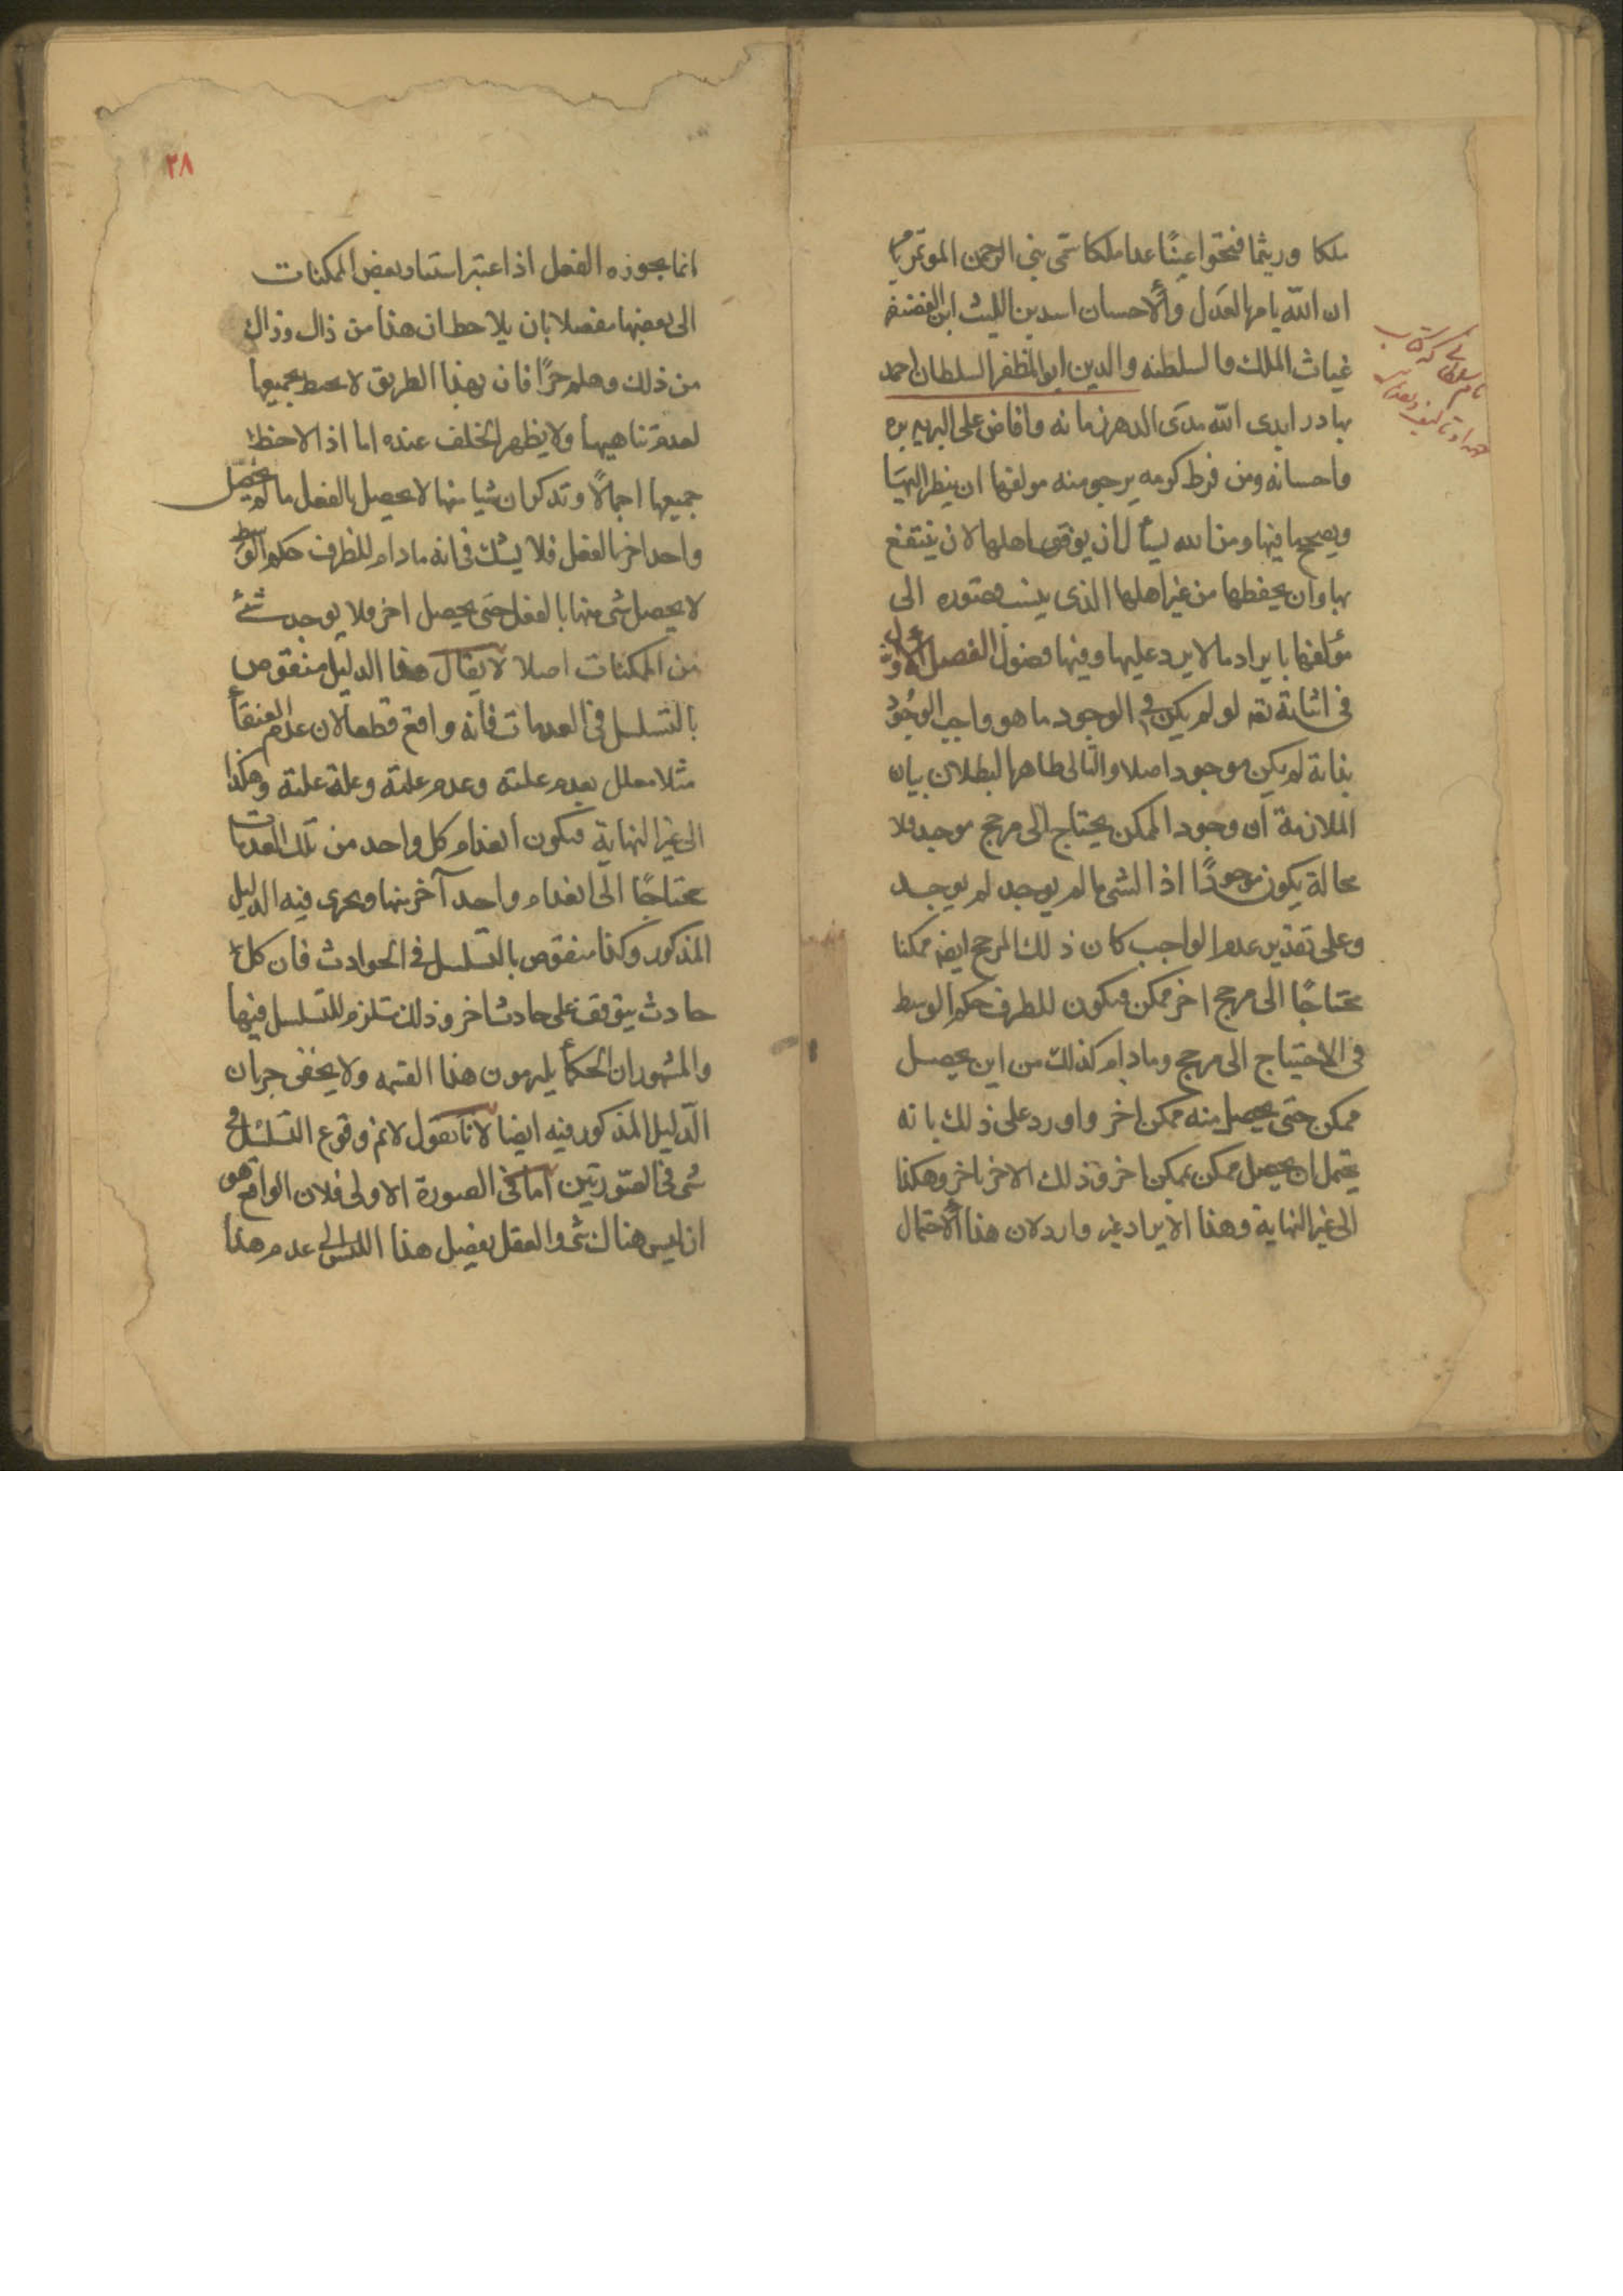 ملكا وريثما فتحوا عينًا عدا ملكا سمى بنى الرحمن الموتمر بما
ان الله يامر بالعدل والاحسان اسد بن الليث ابن الغضنفر
غياث الملك والسلطنه والدين ابو المظفر السلطان احمد
بهادر ابدى الله مدى الدهر زمانه وافاض على البريه بره
واحسانه ومن فرط كرمه يرجو منه مولفها ان ينظر اليها
ويصحح ما فيها ومن الله يسأل ان يوفق اهلها لان ينتفع
بها وان يحفظها من غير اهلها الذى ينسب قصوره الى
مؤلفها بايراد ما لا يرد عليها وفيها فصول الفصل الاول
فى اثباته تعه لو لم يكن فى الوجود ما هو واجب الوجود
بذاته لم يكن موجود اصلا والتالى ظاهر البطلان بيان
الملازمة ان وجود الممكن يحتاج الى مرجح موجد فلا
محالة يكون موجودًا اذ الشى ما لم يوجد لم يوجد
وعلى تقدير عدم الواجب كان ذلك المرجح ايضه ممكنا
محتاجًا الى مرجح اخر ممكن فيكون للطرف حكم الوسط
فى الاحتياج الى مرجح وما دام كذلك من اين يحصل
ممكن حتى يحصل منه ممكن اخر واورد على ذلك بانه
يحتمل ان يحصل ممكن بممكن اخر وذلك الاخر باخر وهكذا
الى غير النهاية وهذا الايراد غير وارد لان هذا الاحتمال
نام سلطانى كه كتاب
٢٨
انما يجوزه العقل اذا اعتبر استناد بعض الممكنات
الى بعضها مفصلا بان يلاحظ ان هذا من ذاك وذاك
من ذلك وهلم جرًا فان بهذا الطريق لا يحيط بجميعها
لعدم تناهيها ولا يظهر الخلف عنده اما اذا لاحظ
جميعها اجمالًا وتذكر ان شيا منها لا يحصل بالفعل ما لم يحصل
واحد اخر بالفعل فلا يشك فى انه ما دام للطرف حكم الوسط
لا يحصل شى منها بالفعل حتى يحصل اخر فلا يوجد شئ
من الممكنات اصلا لا يقال هذا الدليل منقوض
بالتسلسل فى العدمات فانه واقع قطعا لان عدم العنقأ
مثلا معلل بعدم علته وعدم علته وعلة علته وهكذا
الى غير النهاية فيكون انعدام كل واحد من تلك العدمات
محتاجًا الى انعدام واحد آخر منها ويجرى فيه الدليل
المذكور وكذا منقوض بالتسلسل فى الحوادث فان كل
حادث يتوقف على حادث اخر وذلك مستلزم للتسلسل فيها
والمشهور ان الحكمأ يلتزمون هذا القسم ولا يخفى جريان
الدليل المذكور فيه ايضا لانا نقول لا نم وقوع التسلسل فى
شى فى الصورتين اما فى الصورة الاولى فلان الواقع هو
ان ليس هناك شى والعقل يفصل هذا الليس الى عدم هذا